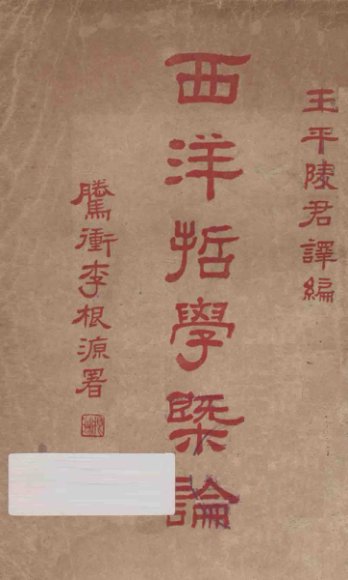 王平陵君譯編
西洋哲學槩論
騰衝李根源署